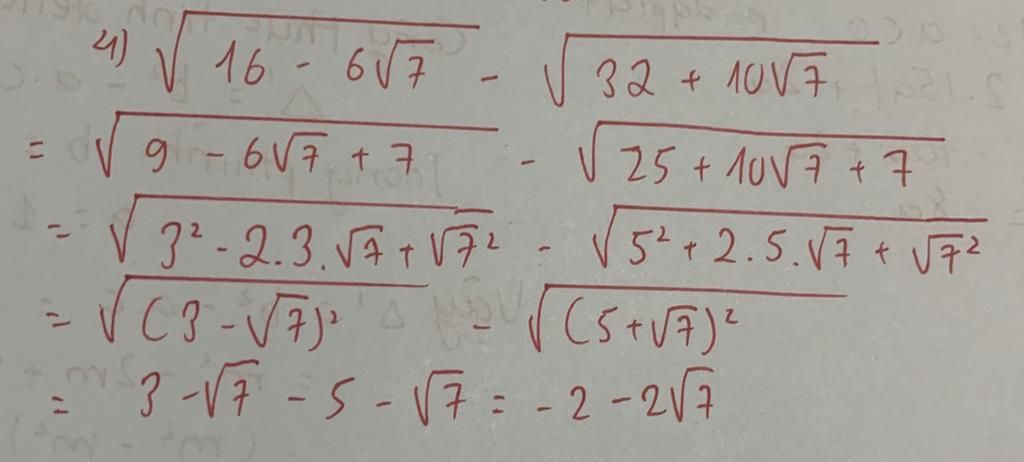 4) √(16 - 6√7) - √(32 + 10√7)
= √(9 - 6√7 + 7) - √(25 + 10√7 + 7)
= √(3² - 2.3.√7 + √7²) - √(5² + 2.5.√7 + √7²)
= √((3 - √7)²) - √((5 + √7)²)
= 3 - √7 - 5 - √7 = - 2 - 2√7